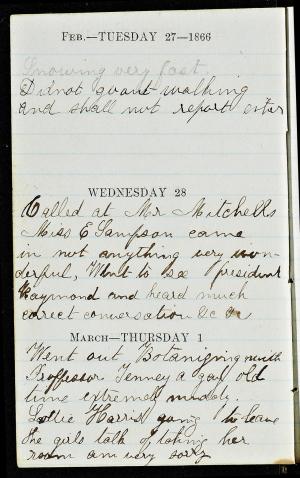 FEB.—TUESDAY 27—1866
Snowing very fast.
Did not go out walking
and shall not report either
WEDNESDAY 28
Called at Mr Mitchells
Miss E Sampson came
in not anything very won-
derful, Went to see president
Raymond and heard much
correct conversation &c
MARCH—THURSDAY 1
Went out Botanizing with
Professor Tenney a gay old
time extremely muddy.
Lottie Harris going to leave
the girls talk of taking her
room am very sorry